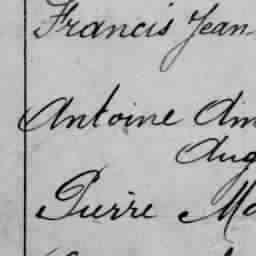 Francis Jean
Antoine Am
Aug
Pierre Ma